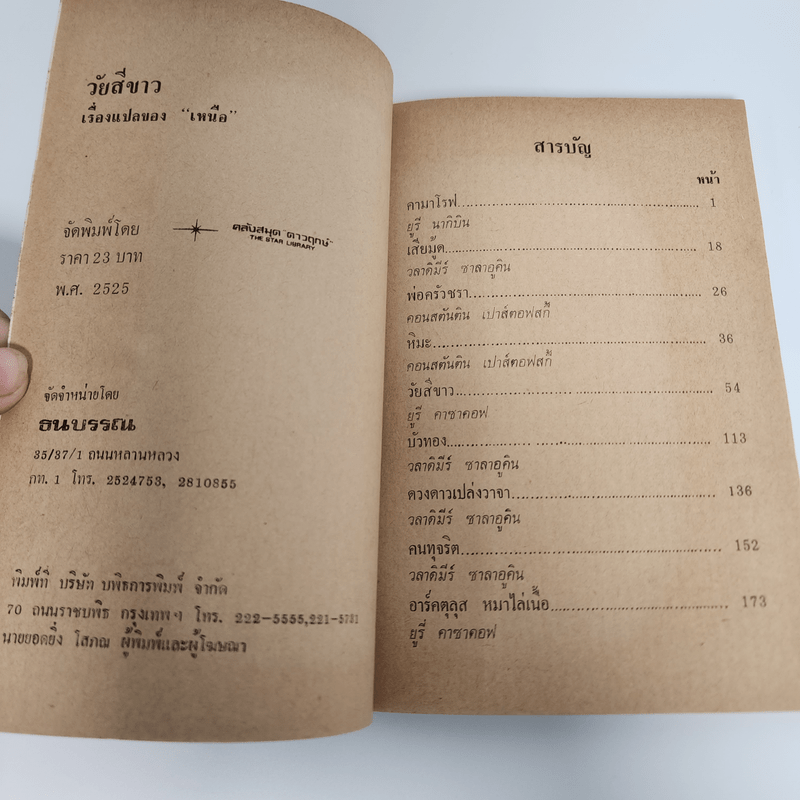 วัยสีขาว
เรื่องแปลของ "เหนือ"
จัดพิมพ์โดย
คลังสมุด "ดาวฤกษ์"
THE STAR LIBRARY
ราคา 23 บาท
พ.ศ. 2525
จัดจำหน่ายโดย
ธนบรรณ
35/37/1 ถนนหลานหลวง
กท. 1 โทร. 2524753, 2810855
พิมพ์ที่ บริษัท บพิธการพิมพ์ จำกัด
70 ถนนราชบพิธ กรุงเทพฯ โทร. 222-5555, 221-5731
นายยอดยิ่ง โสภณ ผู้พิมพ์และผู้โฆษณา
สารบัญ
หน้า
คามาโรฟ 1
ยูรี นากิบิน
เสียมู้ด 18
วลาดิมีร์ ซาลาอูคิน
พ่อครัวชรา 26
คอนสตันติน เปาส์ตอฟสกี้
หิมะ 36
คอนสตันติน เปาส์ตอฟสกี้
วัยสีขาว 54
ยูรี คาซาคอฟ
บัวทอง 113
วลาดิมีร์ ซาลาอูคิน
ดวงดาวเปล่งวาจา 136
วลาดิมีร์ ซาลาอูคิน
คนทุจริต 152
วลาดิมีร์ ซาลาอูคิน
อาร์คตุลุส หมาไล่เนื้อ 173
ยูรี่ คาซาคอฟ